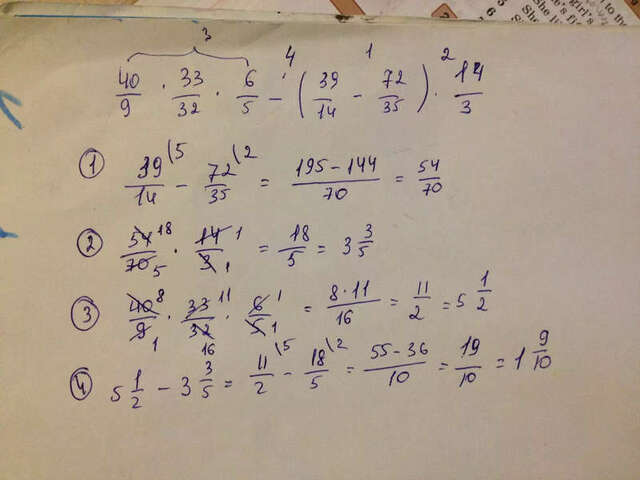 3 4 1 2
40/9 · 33/32 · 6/5 - (39/14 - 72/35) · 14/3
① 39/14 \5 - 72/35 \2 = 195-144/70 = 54/70
② 54 18/70 5 · 14 1/3 1 = 18/5 = 3 3/5
③ 40 8/9 1 · 33 11/32 16 · 6 1/5 1 = 8·11/16 = 11/2 = 5 1/2
④ 5 1/2 - 3 3/5 = 11/2 \5 - 18/5 \2 = 55-36/10 = 19/10 = 1 9/10